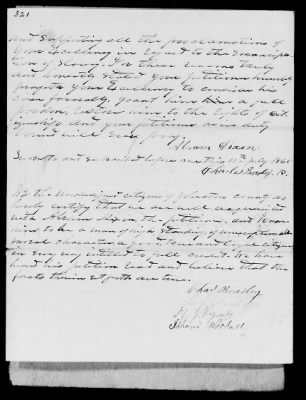 321
and supporting all the proclamations of
your Excellency in regard to the Emancipa-
tion of Slavery. For these reasons truly
and honestly stated your petitioner humbly
prays your Excellency to consider his
case favorably, grant him a full
pardon, restore him to the rights of cit-
izenship and your petitioner as in duty
bound will ever pray.
Abram Dixon
Sworn to and subscribed before me this 11th July 1865
J.P.
We the undersigned citizens of Johnston county do
hereby certify that we are well acquainted
with Abram Dixon the petitioner, and know
him to be a man of high standing, of unexceptional
moral character a good and loyal citizen
in every way entitled to full credit. We have
heard his petition read and believe that the
facts therein set forth are true.
Chas